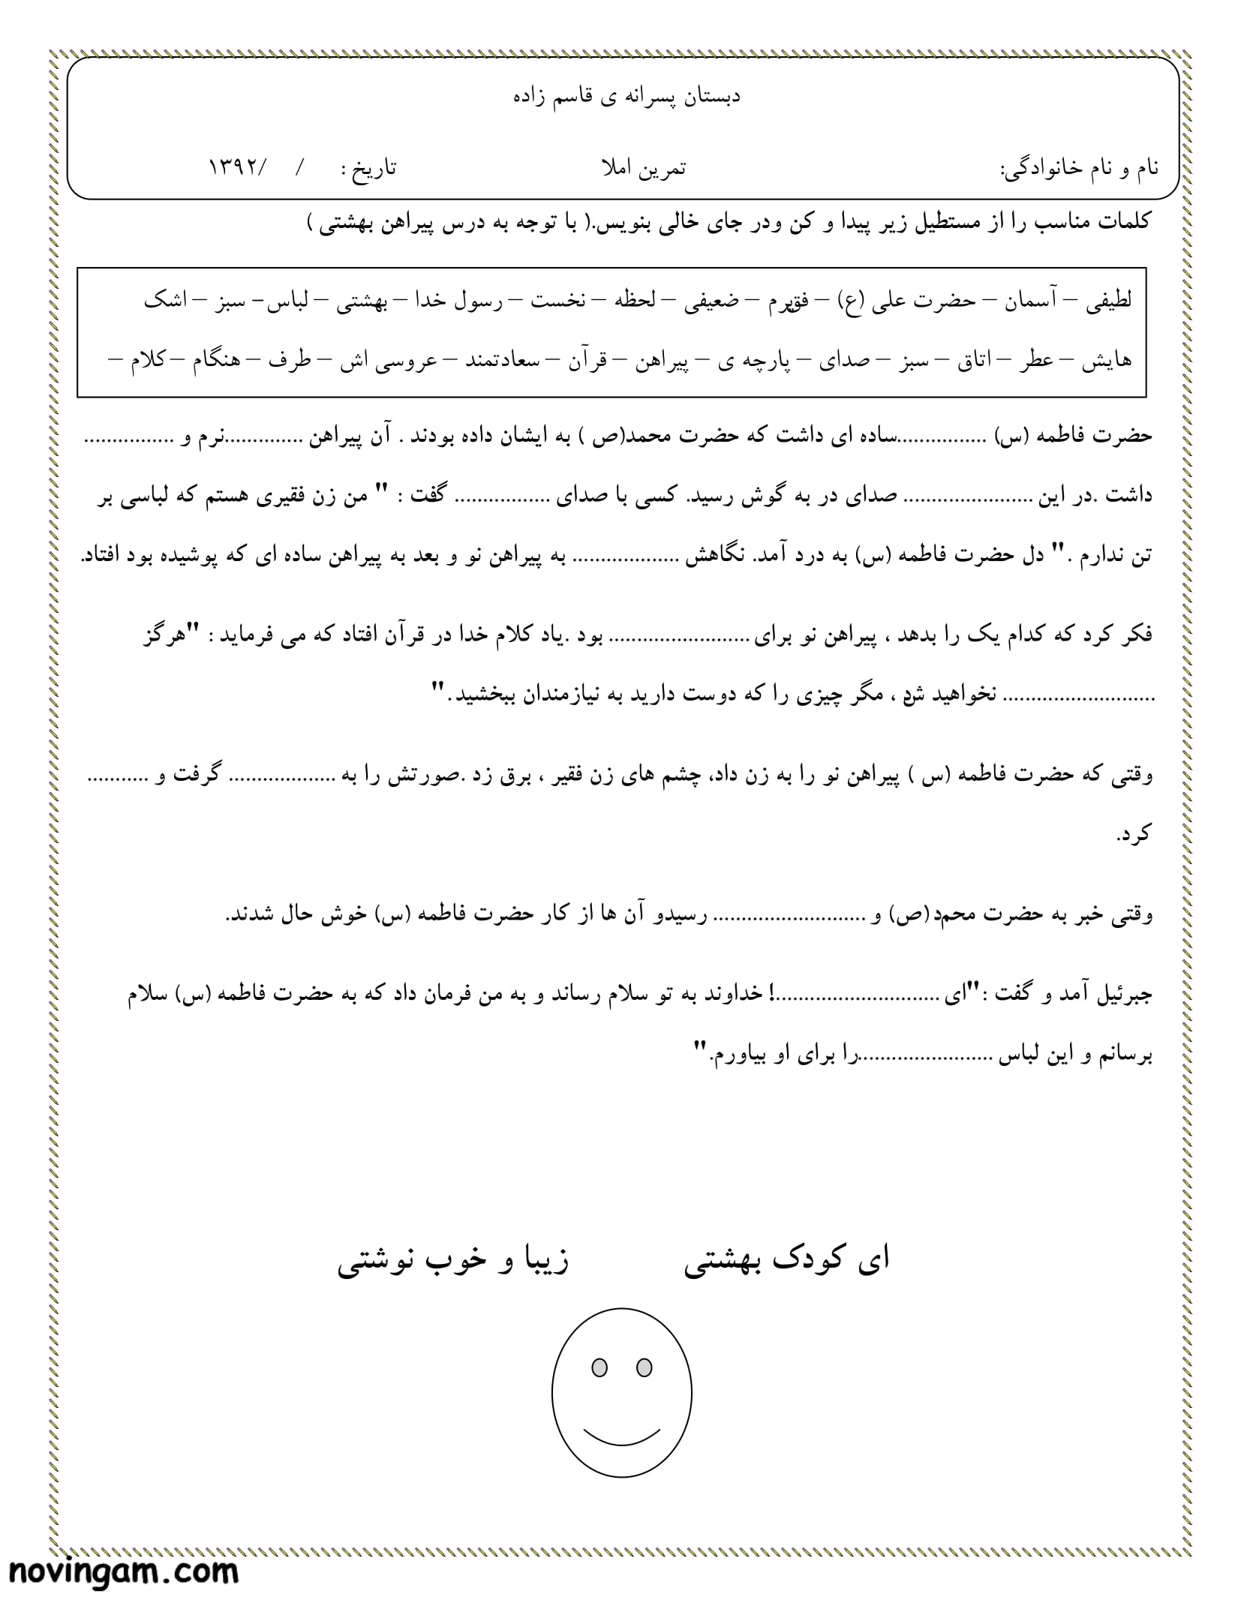 دبستان پسرانه ی قاسم زاده
نام و نام خانوادگی: تمرین املا تاریخ : / /۱۳۹۲
کلمات مناسب را از مستطیل زیر پیدا و کن ودر جای خالی بنویس.( با توجه به درس پیراهن بهشتی )
لطیفی – آسمان – حضرت علی (ع) – فقیرم – ضعیفی – لحظه – نخست – رسول خدا – بهشتی – لباس – سبز – اشک
هایش – عطر – اتاق – سبز – صدای – پارچه ی – پیراهن – قرآن – سعادتمند – عروسی اش – طرف – هنگام – کلام –
حضرت فاطمه (س) ................ساده ای داشت که حضرت محمد(ص ) به ایشان داده بودند . آن پیراهن ..............نرم و ................
داشت .در این ....................... صدای در به گوش رسید. کسی با صدای ................. گفت : " من زن فقیری هستم که لباسی بر
تن ندارم ." دل حضرت فاطمه (س) به درد آمد. نگاهش ................... به پیراهن نو و بعد به پیراهن ساده ای که پوشیده بود افتاد.
فکر کرد که کدام یک را بدهد ، پیراهن نو برای ......................... بود .یاد کلام خدا در قرآن افتاد که می فرماید : "هرگز
........................... نخواهید شد ، مگر چیزی را که دوست دارید به نیازمندان ببخشید ."
وقتی که حضرت فاطمه (س ) پیراهن نو را به زن داد، چشم های زن فقیر ، برق زد .صورتش را به ................... گرفت و ...........
کرد.
وقتی خبر به حضرت محمد(ص) و ........................... رسیدو آن ها از کار حضرت فاطمه (س) خوش حال شدند.
جبرئیل آمد و گفت :"ای .............................! خداوند به تو سلام رساند و به من فرمان داد که به حضرت فاطمه (س) سلام
برسانم و این لباس ........................را برای او بیاورم."
ای کودک بهشتی زیبا و خوب نوشتی
novingam.com